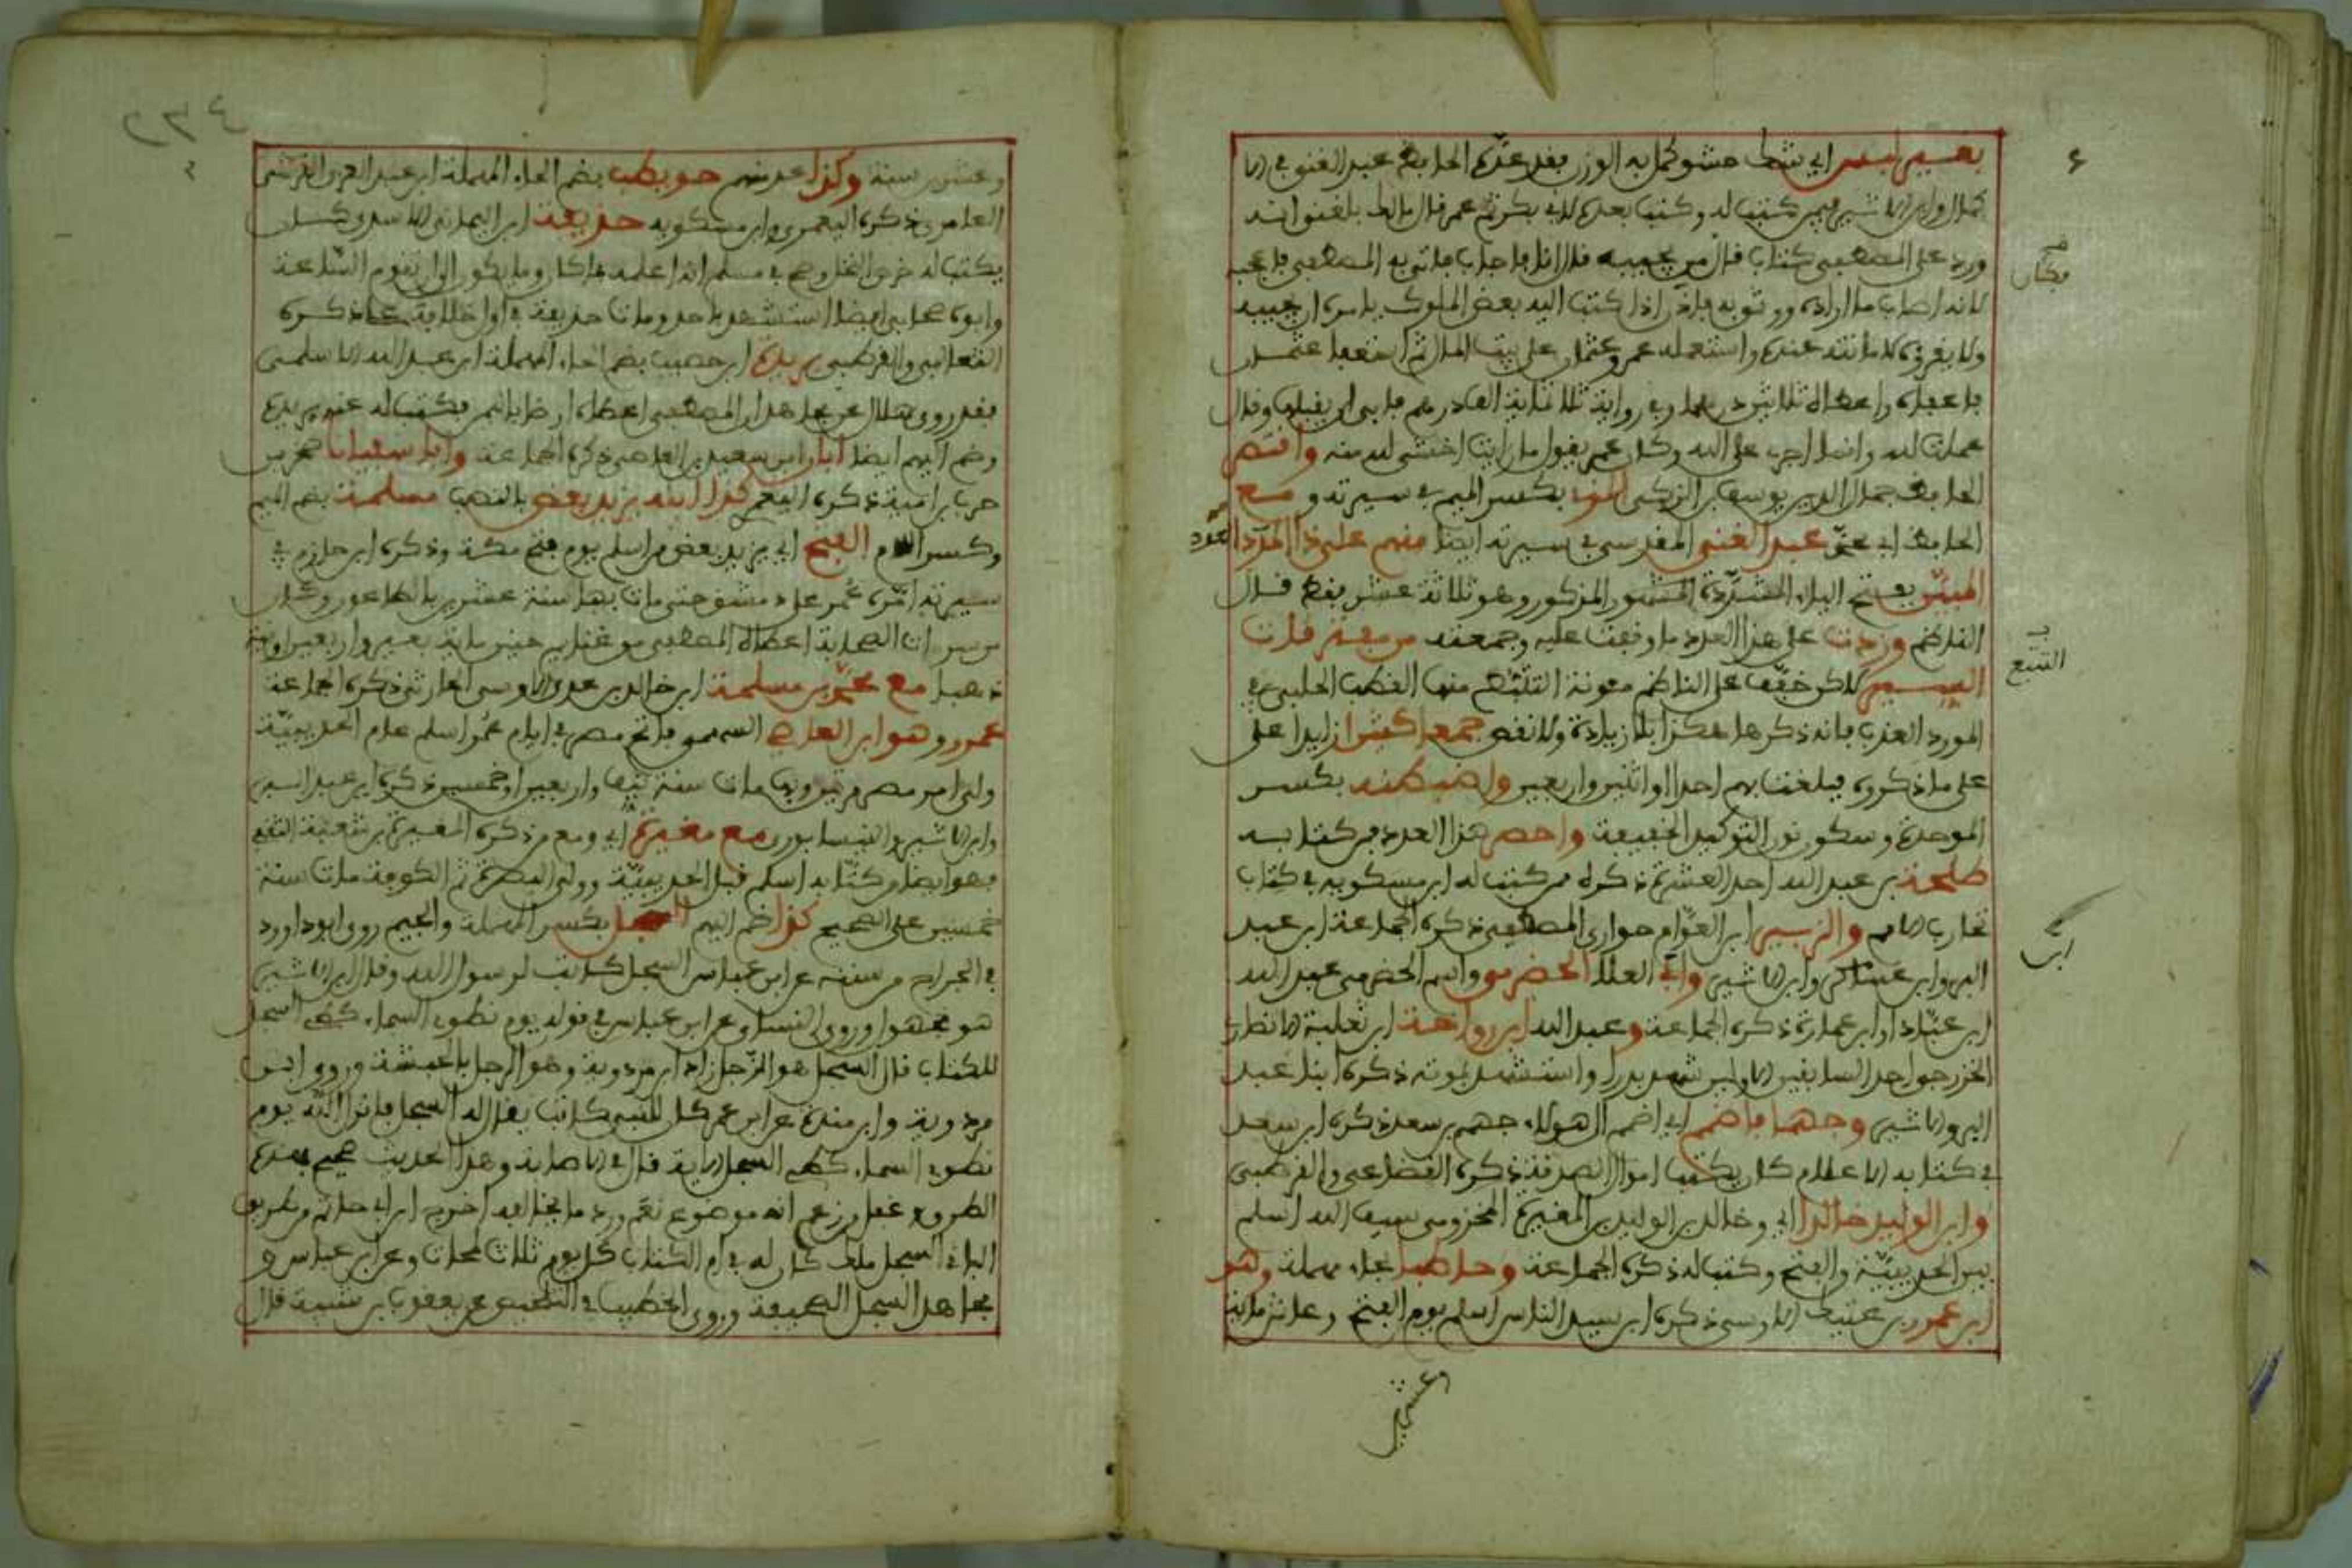 بغير لبس اي شك حشو كمل به الوزن فقد عدّه الحافظ عبد الغني في الا
كمال وابن الاثير فيمن كتب له وكتب بعده لابي بكر ثم عمر قال مالك بلغني انه
ورد على المصطفى كتاب فقال من يجيبه فقال انا فاجاب فاتى به المصطفى فاعجبه
لانه اصاب ما اراده وروى به فاذن اذا كتب اليه بعض الملوك يامره ان يجيبه
ولا يقرؤه لامانته عنده واستعمله عمر وعثمان على بيت المال ثم استعفى عثمان
فاعفاه واعطاه ثلاثين درهما وفي رواية ثلاثماية الف درهم فابى ان يقبلها وقال
عملت لله وانما اجري على الله وكان عمر يقول ما رايت اخشى لله منه واقتصر
الحافظ جمال الدين يوسف بن الزكي المزي بكسر الميم في سيرته و مع
الحافظ ابي محمد عبد الغني المقدسي في سيرته ايضا منهم على ذا العدد
المبيّن بفتح الياء المشدّدة المشهور المذكور وهو ثلاثة عشر فقط قال
الناظم وزدت على هذا العدد ما وقفت عليه وجمعته من مفترقات
السير لاكن خفّف على الناظم مونة التلقط منها القطب الحلبي في
المورد العذب فانه ذكرها هكذا بلا زيادة ولا نقص جمعا كثيرا زايدا على
على ما ذكروه فبلغت بهم احدا او اثنين واربعين واضبطنه بكسر
الموحدة وسكون نون التوكيد الخفيفة واحصر هذا العدد من كتابه
طلحة بن عبد الله احد العشرة ذكره ممن كتب له ابن مسكويه في كتاب
تجارب الامم والزبير ابن العوّام حواري المصطفى ذكره الجماعة ابن عبد
البر وابن عساكر وابن الاثير وابن العلا الحضرمي واسم الحضرمي عبد الله
ابن عبّاد او ابن عمارة ذكره الجماعة وعبد الله ابن رواحة ابن ثعلبة الانصاري
الخزرجي احد السابقين الاولين شهد بدرا واستشهد بموتة ذكره ابنا عبد
البر والاثير وجهما فاضمم اي اضمم الى هولاء جهم بن سعد ذكره ابن سعد
في كتابه الاعلام كان يكتب اموال الصدقة ذكره القضاعي والقرطبي
وابن الوليد خالدا اي وخالد بن الوليد بن المغيرة المخزومي سيف الله اسلم
بين الحديبيّة والفتح وكتب له ذكره الجماعة وحاطبا بحاء مهملة وهو
ابن عمرو بن عتيك الاوسي ذكره ابن سيد الناس اسلم يوم الفتح وعاش ماية
وعشرين
٤
مكان
التتبع
ابن
العدد
وعشرين سنة وكذا عد منهم حويطب بضم الحاء المهملة ابن عبد العزى القرشي
العامري ذكره اليعمري وابن مسكويه حذيفة ابن اليماني الاسدي كان
يكتب له خرص النخل وصح في مسلم انه اعلمه ما كان وما يكون الى ان تقوم الساعة
وابوه صحابي ايضا استشهد باحد ومات حذيفة في اول خلافة علي ذكره
الثعالبي والقرطبي بريدة ابن حصيب بضم الحاء المهملة ابن عبد الله الاسلمي
فقد روى هلال عن مجاهد ان المصطفى اعطاه ارضا باليمن فكتب له عنه بريدة
وضم اليهم ايضا ابان ابن سعيد بن العاص ذكره الجماعة وابا سفيانا صخر بن
حرب بن امية ذكره اليعمري كذا ابنه يزيد بعض بالنصب مسلمة بضم الميم
وكسر اللام الفتح اي يزيد بعض من اسلم يوم فتح مكة وذكره ابن حازم في
سيرته امّره عمر على دمشق حتى مات بها سنة عشرين بالطاعون وكان
من سروات الصحابة اعطاه المصطفى من غنايم حنين ماية بعير واربعين اوقية
ذهبا مع محمّد بن مسلمة ابن خالد بن عدي الاوسي الحارثي ذكره الجماعة
عمرو وهو ابن العاصي السهمي فاتح مصر في ايام عمر اسلم عام الحديبيّة
ولي امر مصر مرتين وبها مات سنة نيف واربعين او خمسين ذكره ابن عبد البر
وابن الاثير والنيسابوري مع مغيرة اي ومع من ذكره المغيرة بن شعبة الثقفي
فهو ايضا من كتّابه اسلم قبل الحديبيّة وولي البصرة ثم الكوفة مات سنة
خمسين على الصحيح كذا ضم اليهم السجل بكسر المهملة والجيم روى ابو داود
في الخراج من سننه عن ابن عباس السجل كاتب لرسول الله وقال ابن الاثير
هو مجهول وروى النساي عن ابن عباس في قوله يوم نطوي السماء كطي السجل
للكتاب قال السجل هو الرّجل زاد ابن مردوية وهو الرجل بالحبشة وروى ابن
مردوية وابن مندة عن ابن عمر كان للنبي كاتب يقال له السجل فانزل الله يوم
نطوي السماء كطي السجل الاية قال في الاصابة وهذا الحديث صحيح بهذه
الطرق وغفل من زعم انه موضوع نعم ورد ما يخالفه اخرج ابن ابي حاتم من طريق
الباقر السجل ملك كان له في ام الكتاب كل يوم ثلاث لمحات وعن ابن عباس و
مجاهد السجل الصحيفة وروى الخطيب في التلخيص عن يعقوب بن شيبة قال